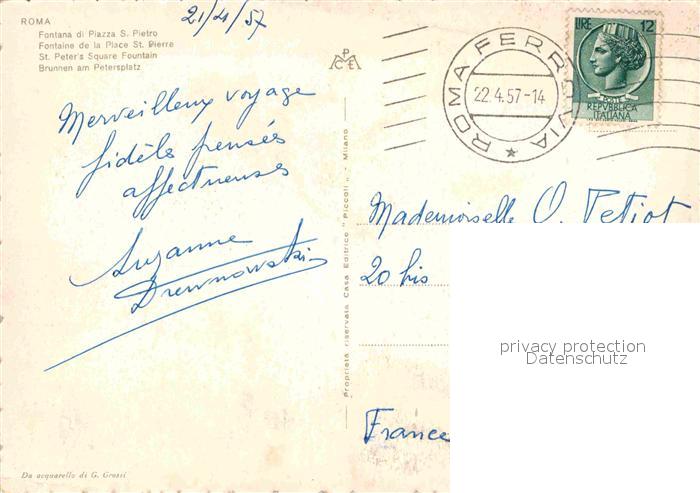 ROMA
Fontana di Piazza S. Pietro
Fontaine de la Place St. Pierre
St. Peter's Square Fountain
Brunnen am Petersplatz
21/4/57
Merveilleux voyage
fidèles pensées
affectueuses
Suzanne
Drewnowski
Da acquarello di G. Grossi
Proprietà riservata Casa Editrice "Piccoli" - Milano
ROMA FERROVIA
22.4.57-14
LIRE 12
POSTE
REPVBBLICA
ITALIANA
Mademoiselle O. Petiot
20 bis
France
privacy protection
Datenschutz